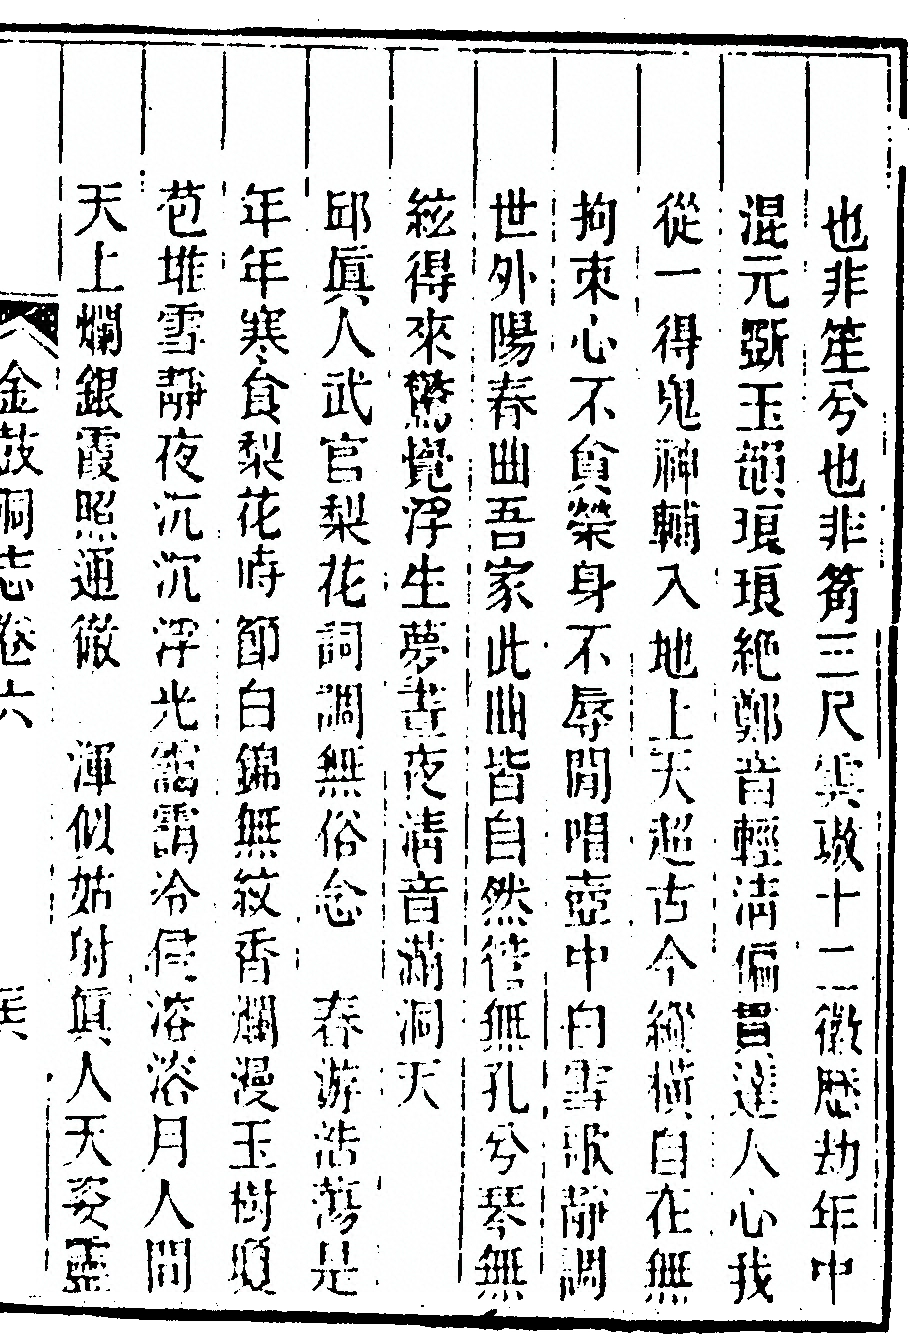 也非笙兮也非筩三尺雲璈十二徽歷劫年中
混元斲玉韻琅琅絕鄭音輕淸偏貫達人心我
從一得鬼神輔入地上天超古今縱橫自在無
拘束心不貪榮身不辱閒唱壺中白雪歌靜調
世外陽春曲吾家此曲皆自然管無孔兮琴無
絃得來驚覺浮生夢晝夜淸音滿洞天
邱眞人武官梨花詞調無俗念 春游浩蕩是
年年寒食梨花時節白錦無紋香爛漫玉樹瓊
苞堆雪靜夜沉沉浮光靄靄冷侵溶溶月人間
天上爛銀霞照通徹 渾似姑射眞人天姿靈
金鼓洞志卷六